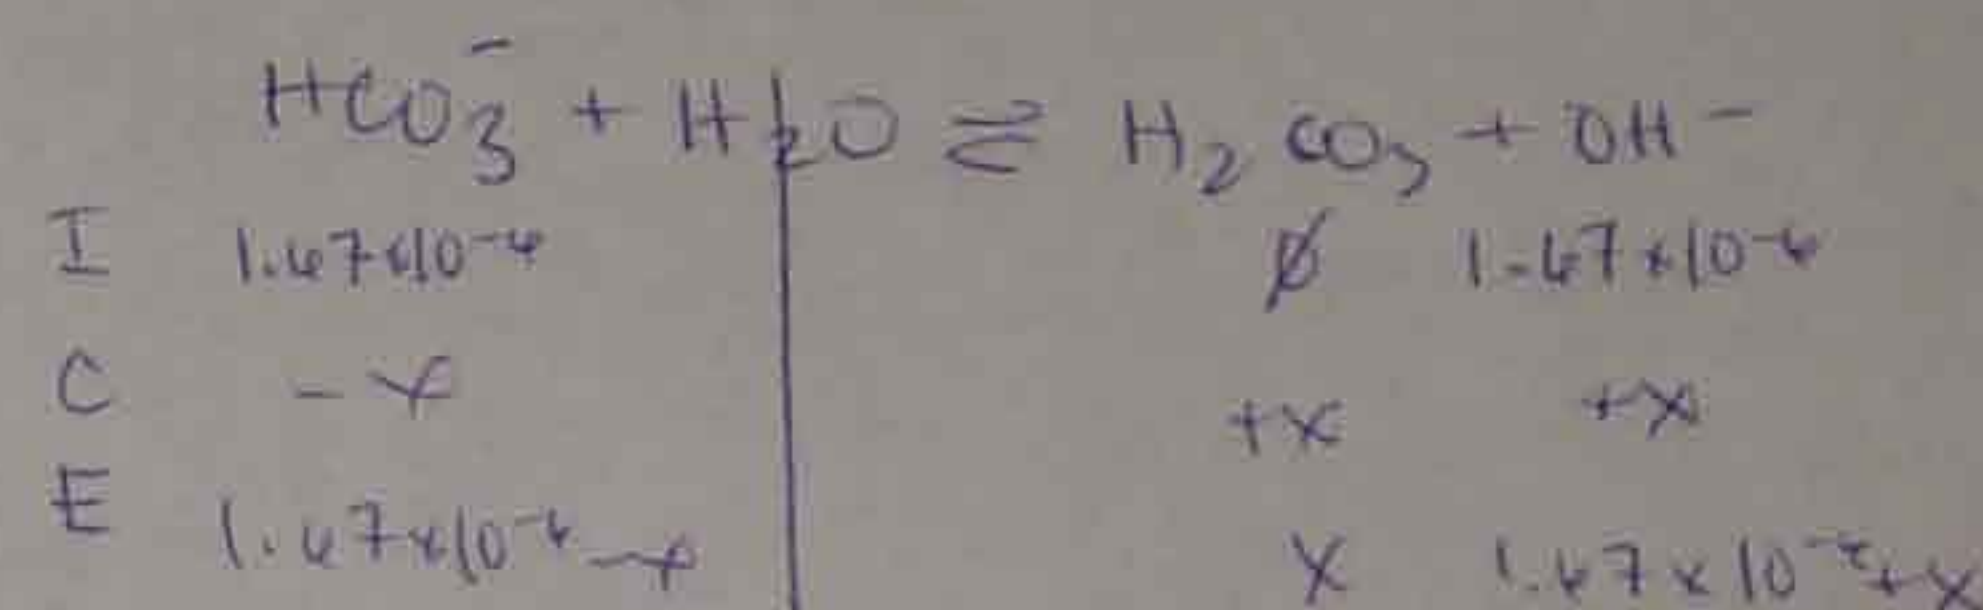 HCO₃⁻ + H₂O ⇌ H₂CO₃ + OH⁻
I 1.67x10⁻⁶ ∅ 1.67x10⁻⁶
C -x +x +x
E 1.67x10⁻⁶-x x 1.67x10⁻⁶+x